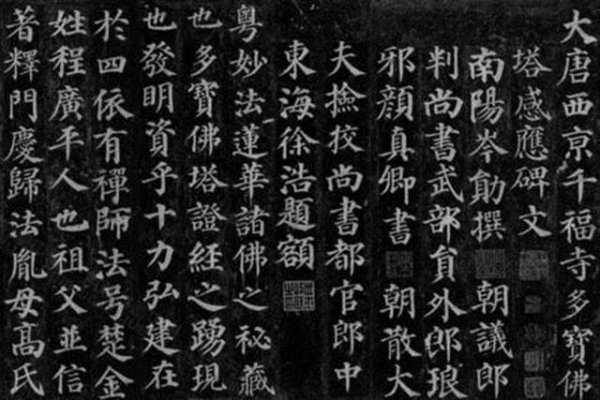 大唐西京千福寺多寶佛
塔感應碑文
南陽岑勛撰 朝議郎
判尚書武部員外郎琅
邪顏真卿書 朝散大
夫撿挍尚書都官郎中
東海徐浩題額
粵妙法蓮華諸佛之祕藏
也多寶佛塔證經之踴現
也發明資乎十力弘建在
於四依有禪師法号楚金
姓程廣平人也祖父並信
著釋門慶歸法胤母高氏